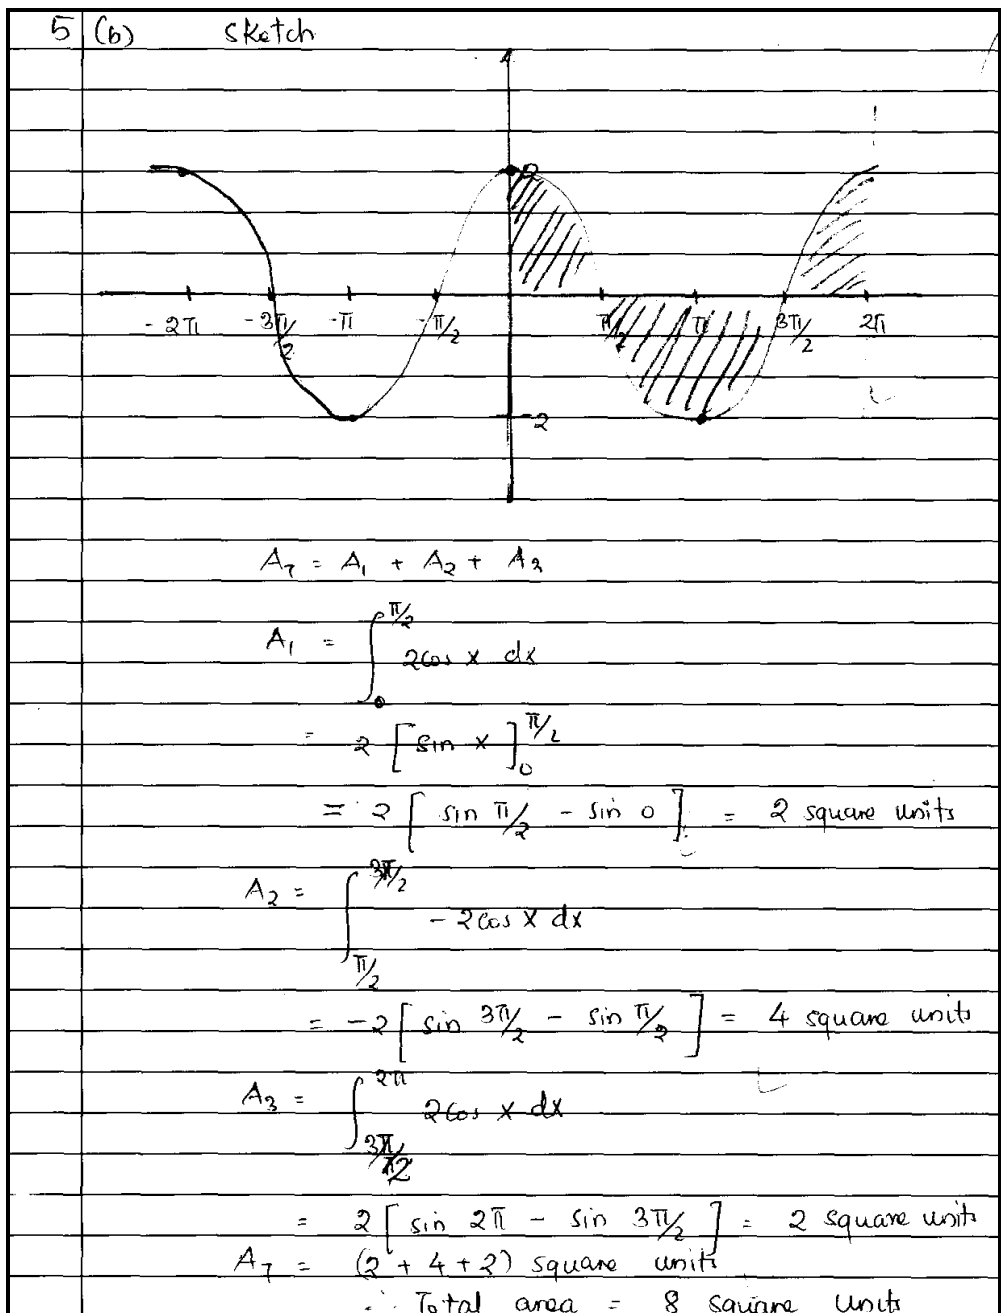 5 (b) Sketch
2
-2π -3π/2 -π -π/2 π/2 π 3π/2 2π
-2
A_T = A₁ + A₂ + A₃
A₁ = ∫₀^{π/2} 2cos x dx
= 2 [sin x]₀^{π/2}
= 2 [ sin π/2 - sin 0 ] = 2 square units
A₂ = ∫_{π/2}^{3π/2} -2cos x dx
= -2 [ sin 3π/2 - sin π/2 ] = 4 square units
A₃ = ∫_{3π/2}^{2π} 2cos x dx
= 2 [ sin 2π - sin 3π/2 ] = 2 square units
A_T = (2 + 4 + 2) square units
∴ Total area = 8 square units